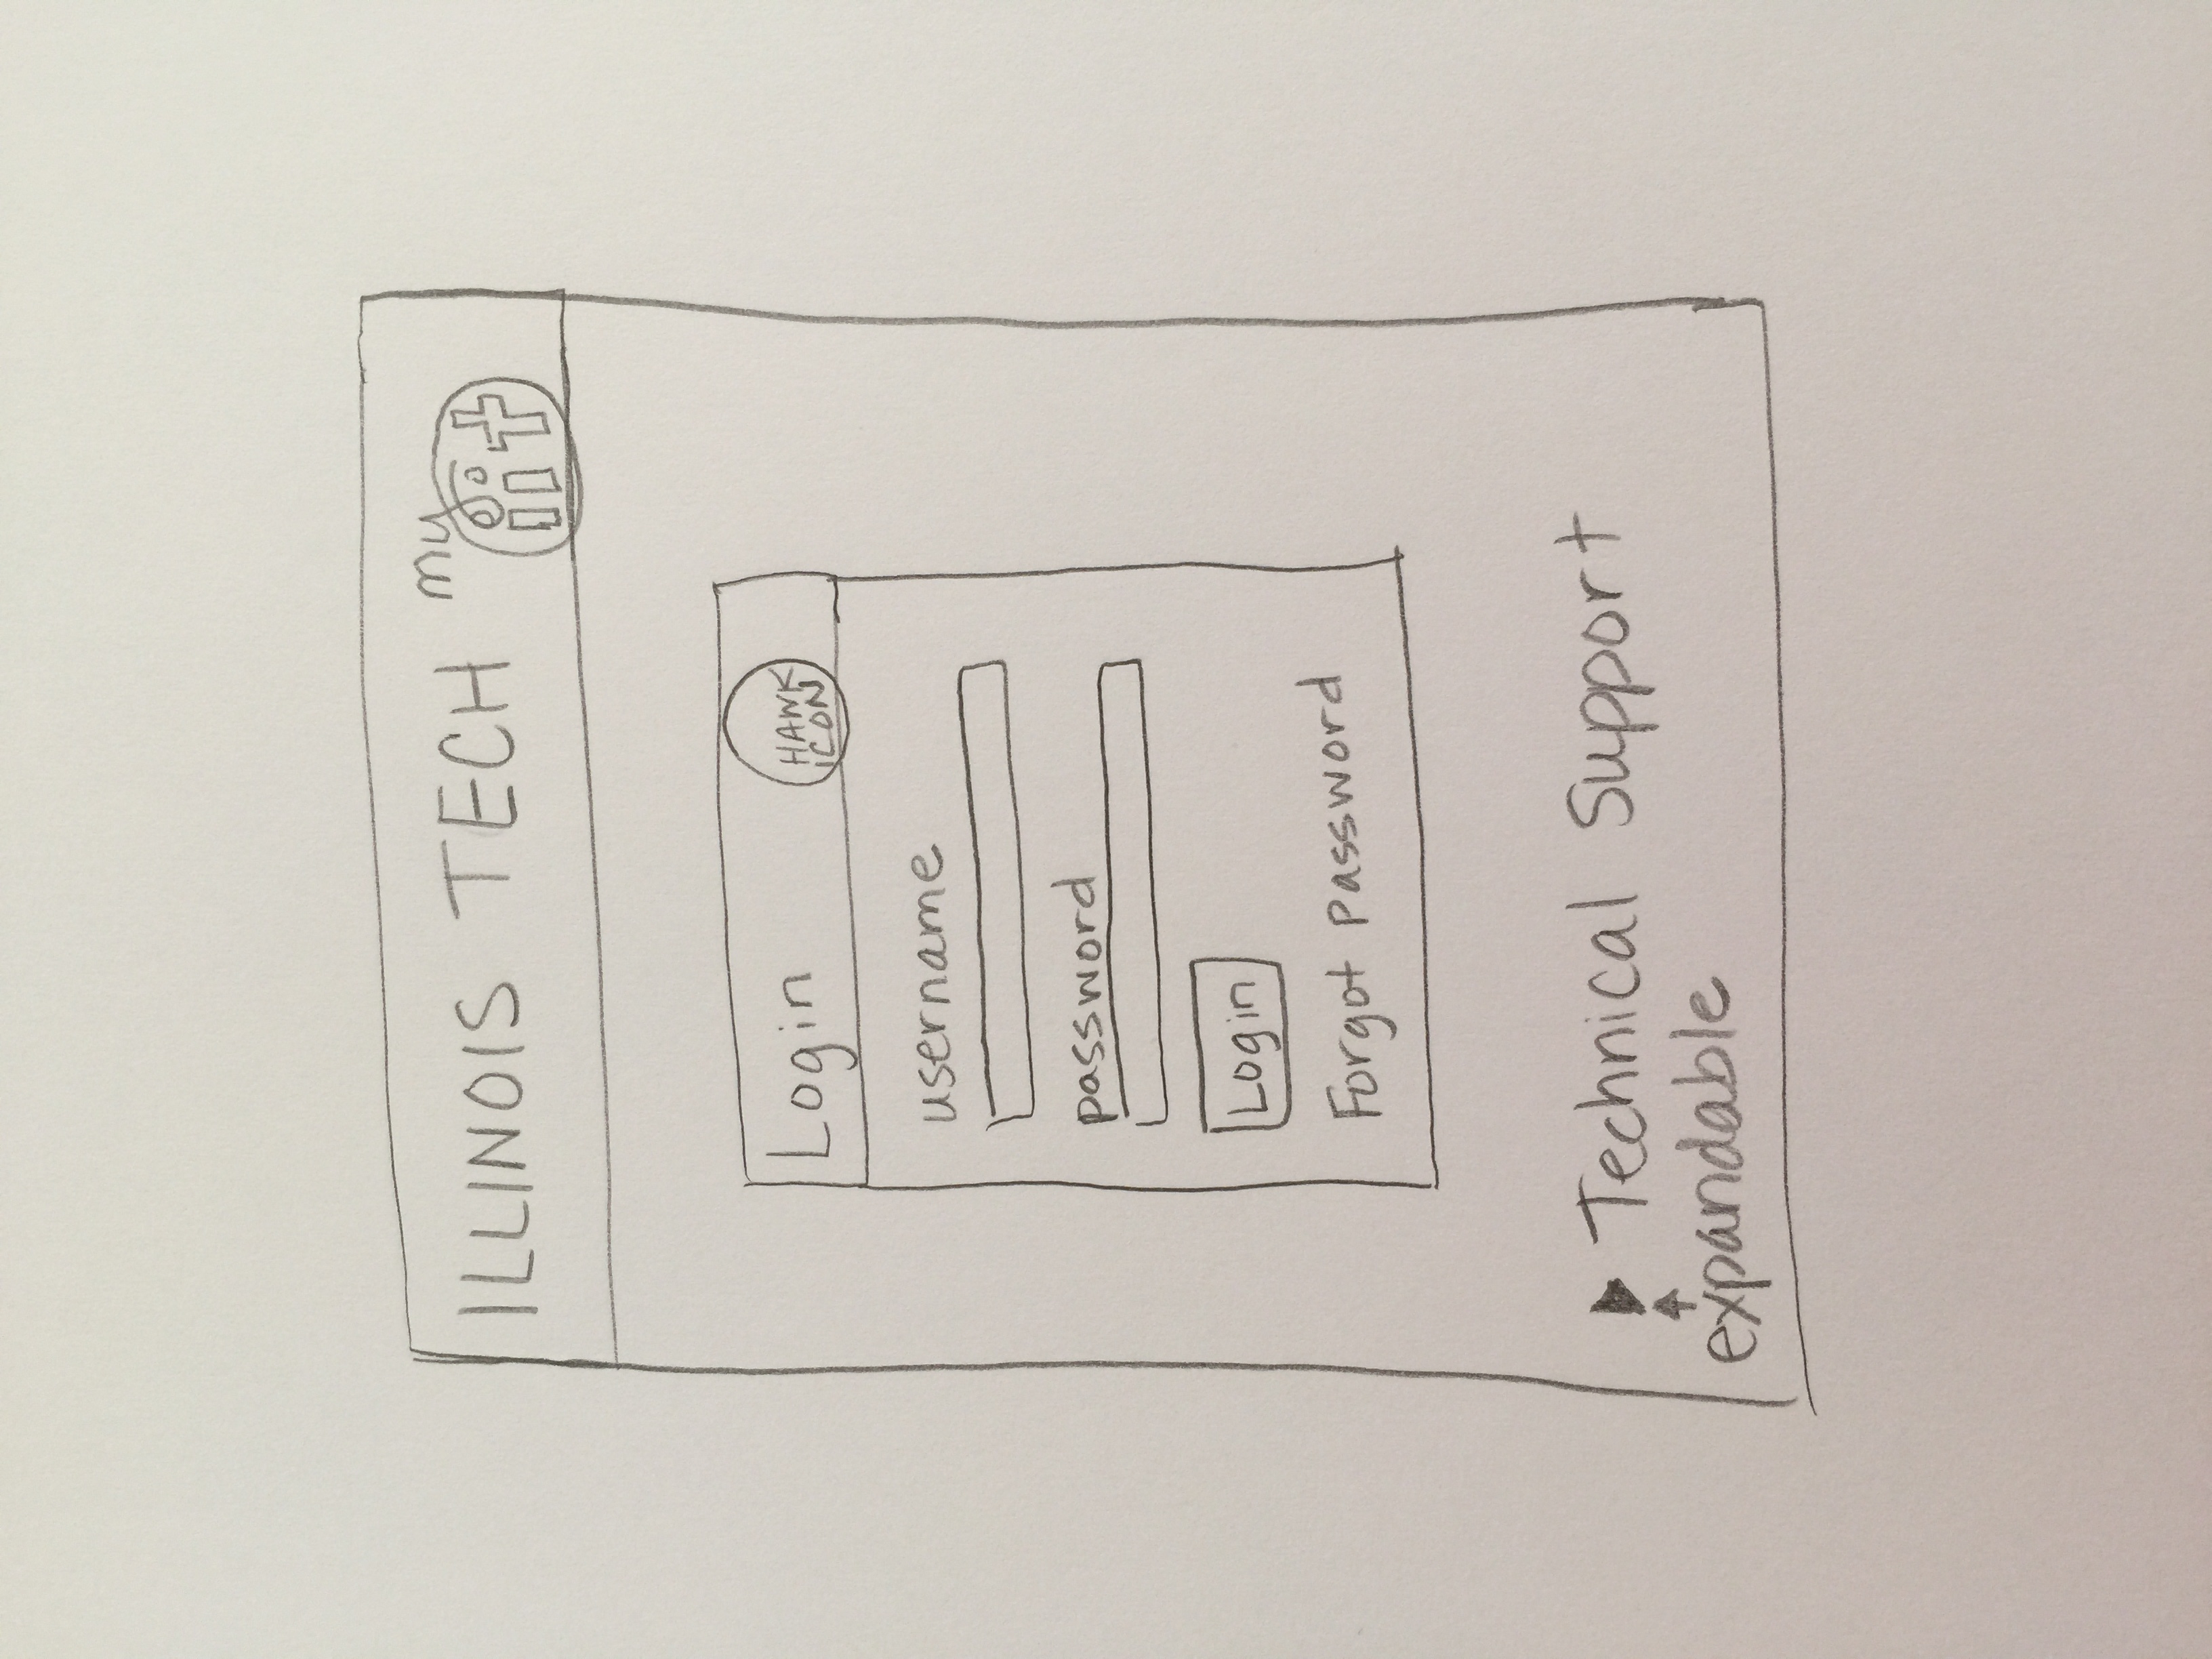 ILLINOIS TECH my iit
Login HAWK
ICON
username
password
Login
Forgot password
Technical Support
expandable